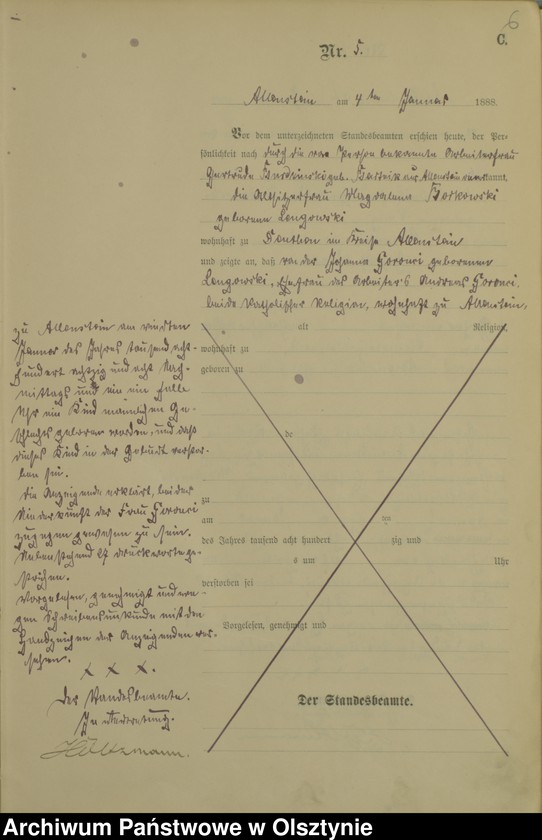 6
C.
Nr. 5.
Allenstein am 4ten Januar 1888.
Vor dem unterzeichneten Standesbeamten erschien heute, der Per-
sönlichkeit nach durch die von Person bekannte Arbeiterfrau
Gertrude geb. aus Allenstein anerkannt,
die Altsitzerfrau Magdalena Borkowski
geborene Lengowski
wohnhaft zu im Kreise Allenstein
und zeigte an, daß von der Johanna Goronci geborenen
Lengowski, Ehefrau des Arbeiters Andreas Goronci,
beide katholischer Religion, wohnhaft zu Allenstein,
zu Allenstein am vierten
Januar des Jahres tausend acht-
hundert achtzig und acht Nach-
mittags um ein ein halb
Uhr ein Kind männlichen Ge-
schlechts geboren worden, und daß
dieses Kind in der Geburt verstor-
ben sei.
Die Anzeigende erklärt, bei der
Niederkunft der Frau Goronci
zugegen gewesen zu sein.
Nebenstehend 17 Druckworte ge-
strichen.
Vorgelesen, genehmigt und we-
gen Schreibensunkunde mit den
Handzeichen der Anzeigenden ver-
sehen.
X X X.
Der Standesbeamte.
In Vertretung.
Holtzmann.
alt Religion,
wohnhaft zu
geboren zu
de
zu
am ten
des Jahres tausend acht hundert zig und
s um Uhr
verstorben sei
Vorgelesen, genehmigt und
Der Standesbeamte.
Archiwum Państwowe w Olsztynie